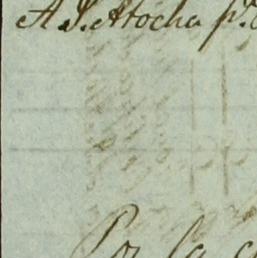 A. J. Atocha p.
Por la